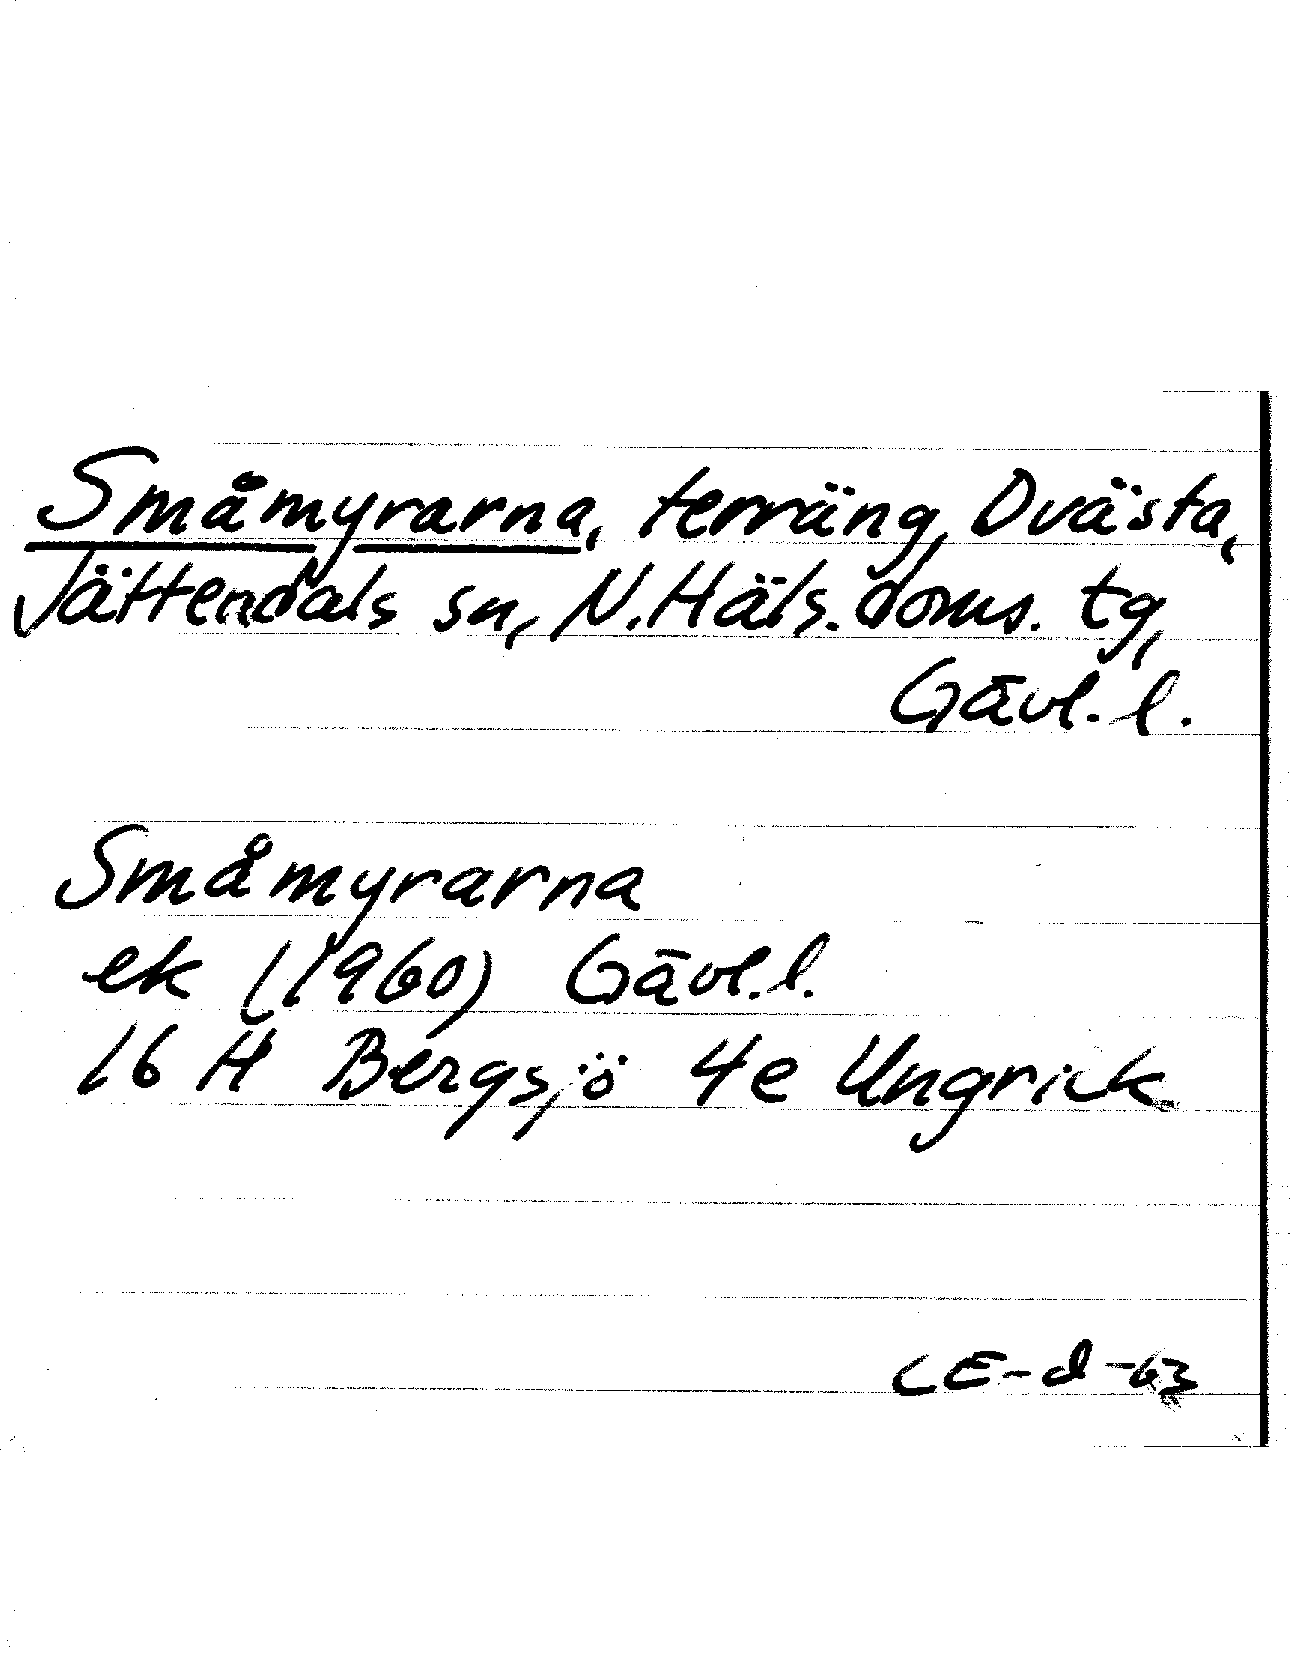 Småmyrarna, terräng, Dvästa,
Jättendals sn, N. Häls. doms. tg,
Gävl. l.
Småmyrarna
ek (1960) Gävl. l.
16 H Bergsjö 4e Ungrick
CE-d-63